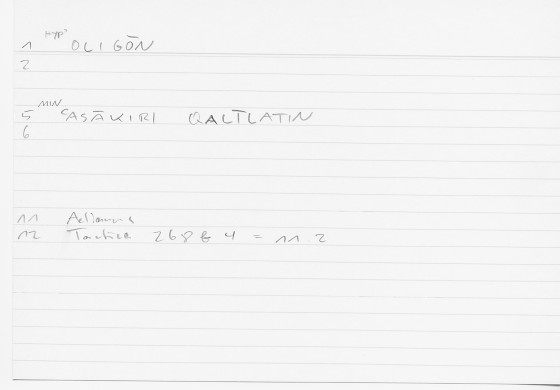 1 hyp' OLIGŌN
2
5 MIN ʿASĀKIRI QALĪLATIN
6
11 Aelianus
12 Tactica 268 & 4 = 11.2